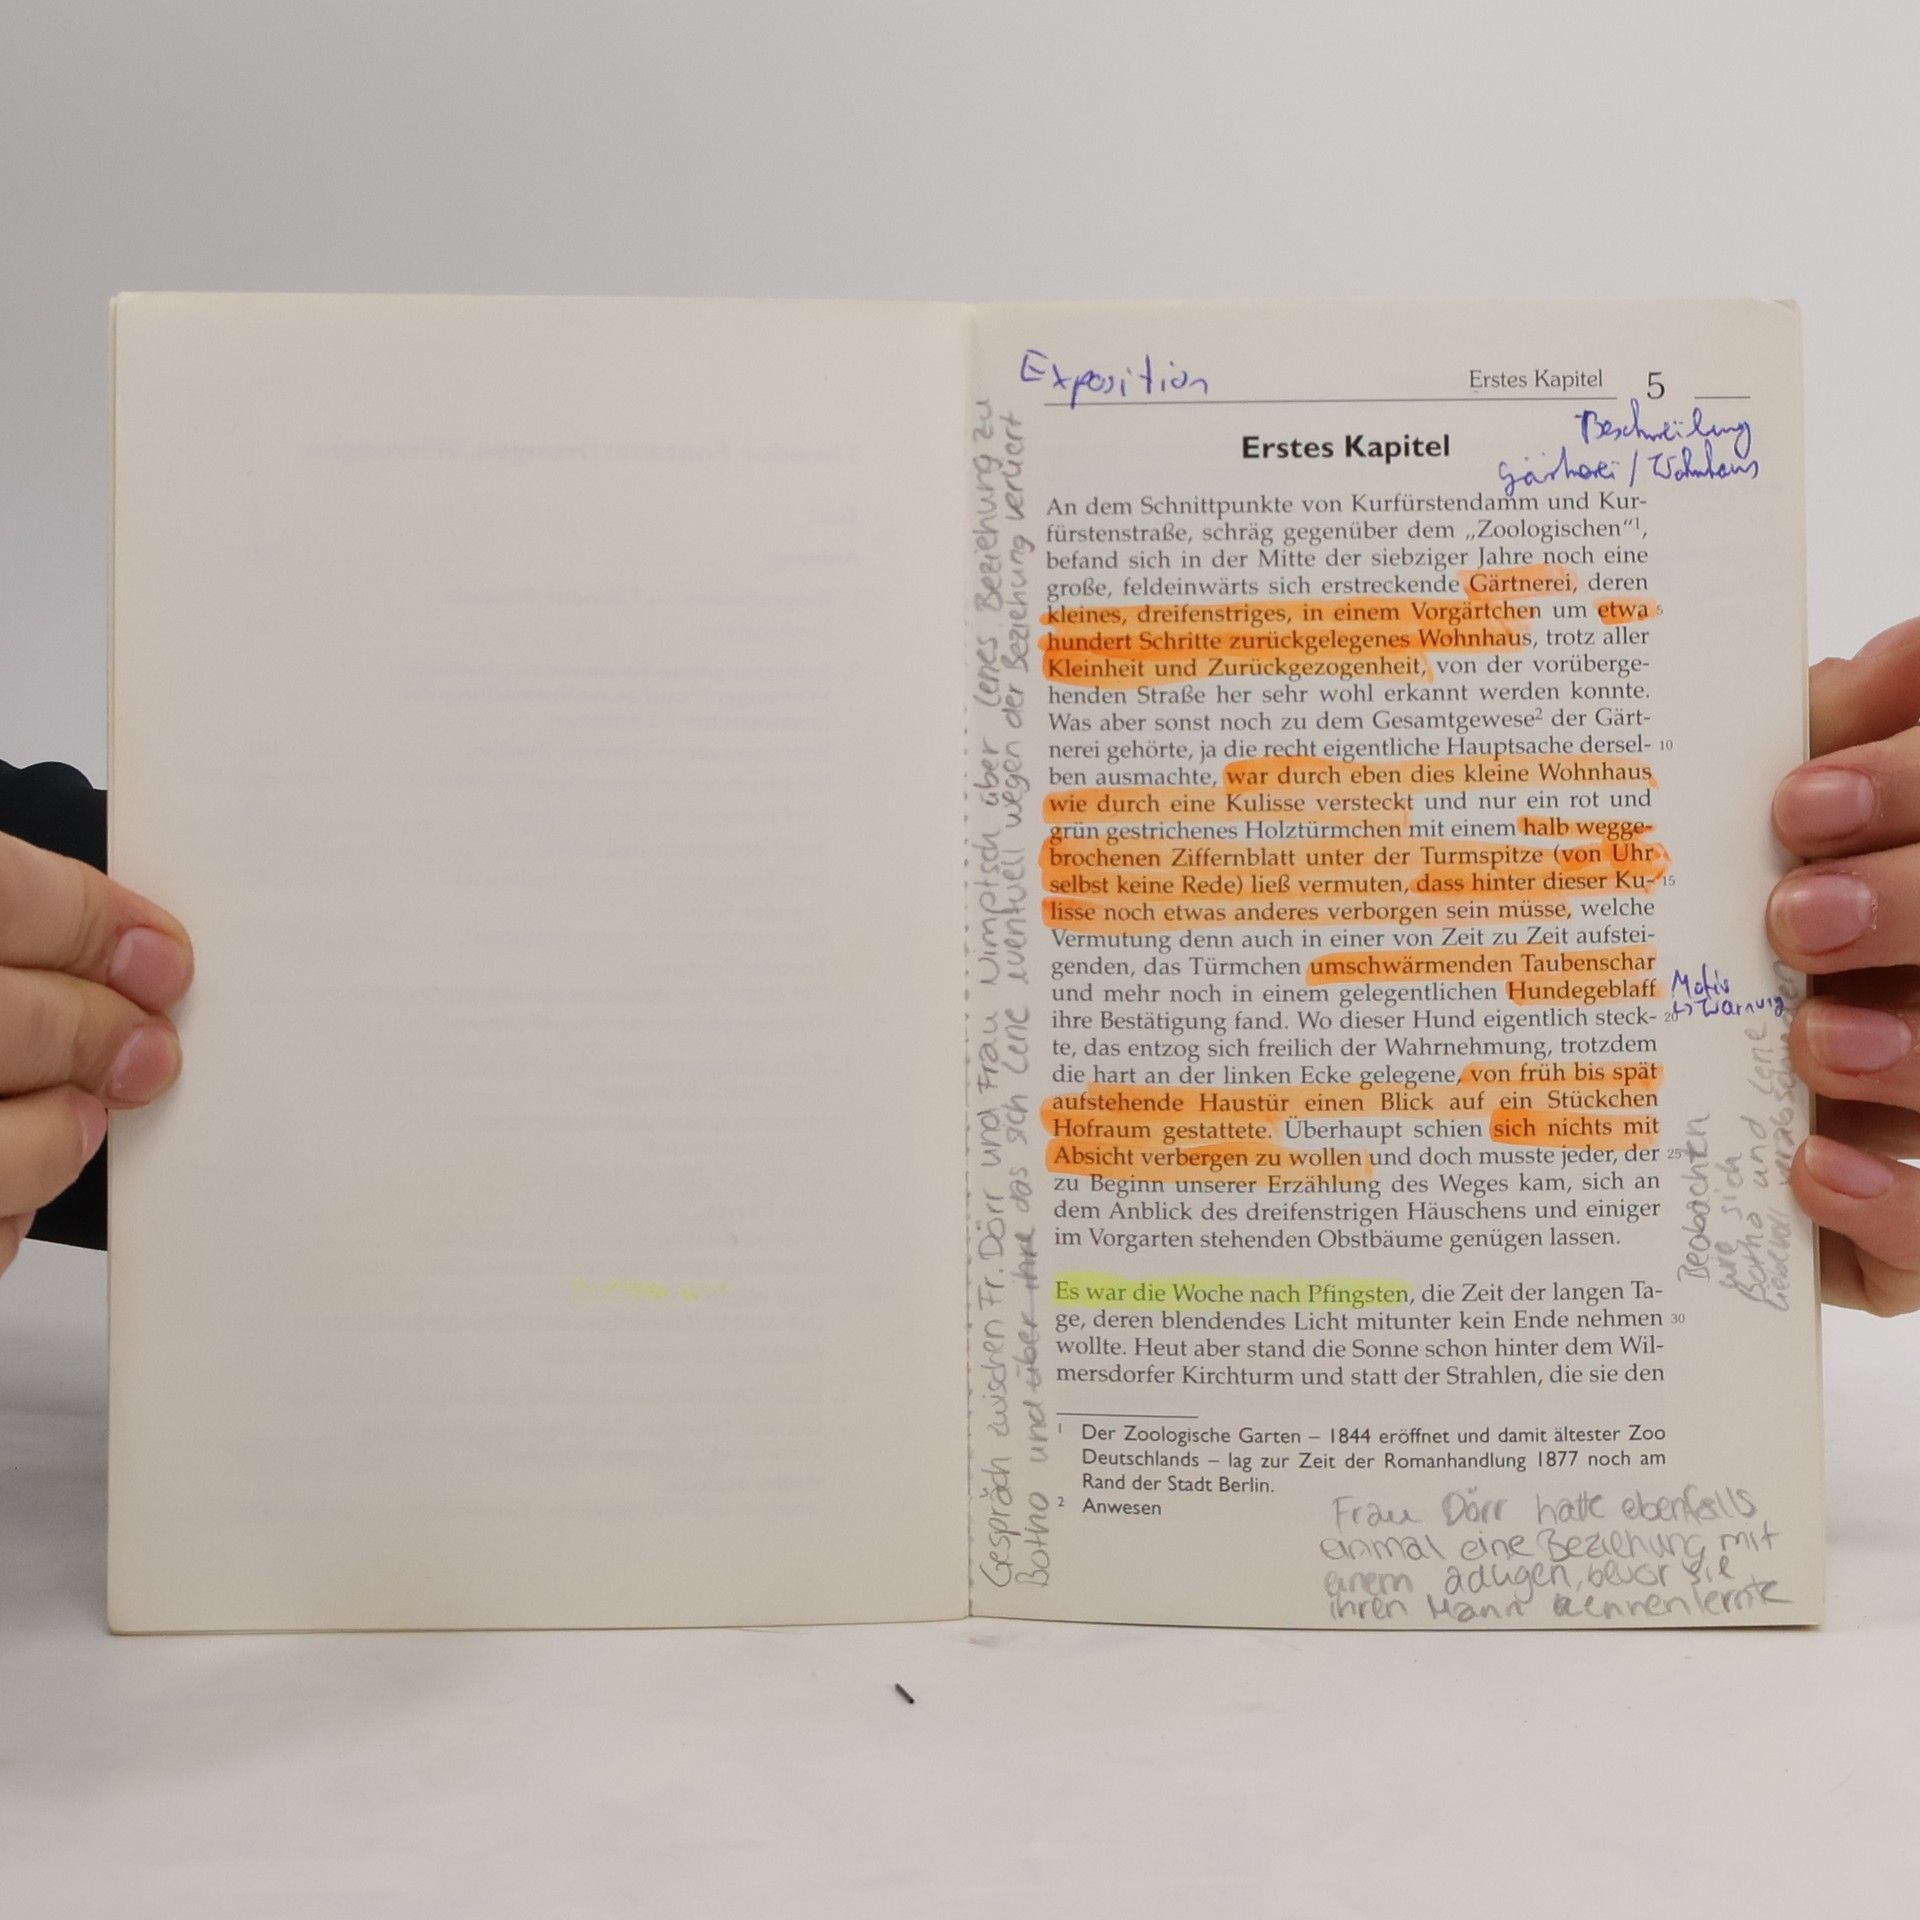 Exposition
Erstes Kapitel 5
Beschreibung
Gärtnerei / Wohnhaus
Erstes Kapitel
An dem Schnittpunkte von Kurfürstendamm und Kur-
fürstenstraße, schräg gegenüber dem „Zoologischen“¹,
befand sich in der Mitte der siebziger Jahre noch eine
große, feldeinwärts sich erstreckende Gärtnerei, deren
kleines, dreifenstriges, in einem Vorgärtchen um etwa 5
hundert Schritte zurückgelegenes Wohnhaus, trotz aller
Kleinheit und Zurückgezogenheit, von der vorüberge-
henden Straße her sehr wohl erkannt werden konnte.
Was aber sonst noch zu dem Gesamtgewese² der Gärt-
nerei gehörte, ja die recht eigentliche Hauptsache dersel- 10
ben ausmachte, war durch eben dies kleine Wohnhaus
wie durch eine Kulisse versteckt und nur ein rot und
grün gestrichenes Holztürmchen mit einem halb wegge-
brochenen Ziffernblatt unter der Turmspitze (von Uhr
selbst keine Rede) ließ vermuten, dass hinter dieser Ku- 15
lisse noch etwas anderes verborgen sein müsse, welche
Vermutung denn auch in einer von Zeit zu Zeit aufstei-
genden, das Türmchen umschwärmenden Taubenschar
und mehr noch in einem gelegentlichen Hundegeblaff
ihre Bestätigung fand. Wo dieser Hund eigentlich steck- 20
te, das entzog sich freilich der Wahrnehmung, trotzdem
die hart an der linken Ecke gelegene, von früh bis spät
aufstehende Haustür einen Blick auf ein Stückchen
Hofraum gestattete. Überhaupt schien sich nichts mit
Absicht verbergen zu wollen und doch musste jeder, der 25
zu Beginn unserer Erzählung des Weges kam, sich an
dem Anblick des dreifenstrigen Häuschens und einiger
im Vorgarten stehenden Obstbäume genügen lassen.
Es war die Woche nach Pfingsten, die Zeit der langen Ta-
ge, deren blendendes Licht mitunter kein Ende nehmen 30
wollte. Heut aber stand die Sonne schon hinter dem Wil-
mersdorfer Kirchturm und statt der Strahlen, die sie den
1 Der Zoologische Garten – 1844 eröffnet und damit ältester Zoo
Deutschlands – lag zur Zeit der Romanhandlung 1877 noch am
Rand der Stadt Berlin.
2 Anwesen
Motiv
↳ Warnung
Beobachten
wie sich
Botho und Lene
liebevoll verabschieden
Gespräch zwischen Fr. Dörr und Frau Nimptsch über Lenes Beziehung zu
Botho und über ihre das sich Lene eventuell wegen der Beziehung verliert
Frau Dörr hatte ebenfalls
einmal eine Beziehung mit
einem adligen, bevor sie
ihren Mann kennenlernte